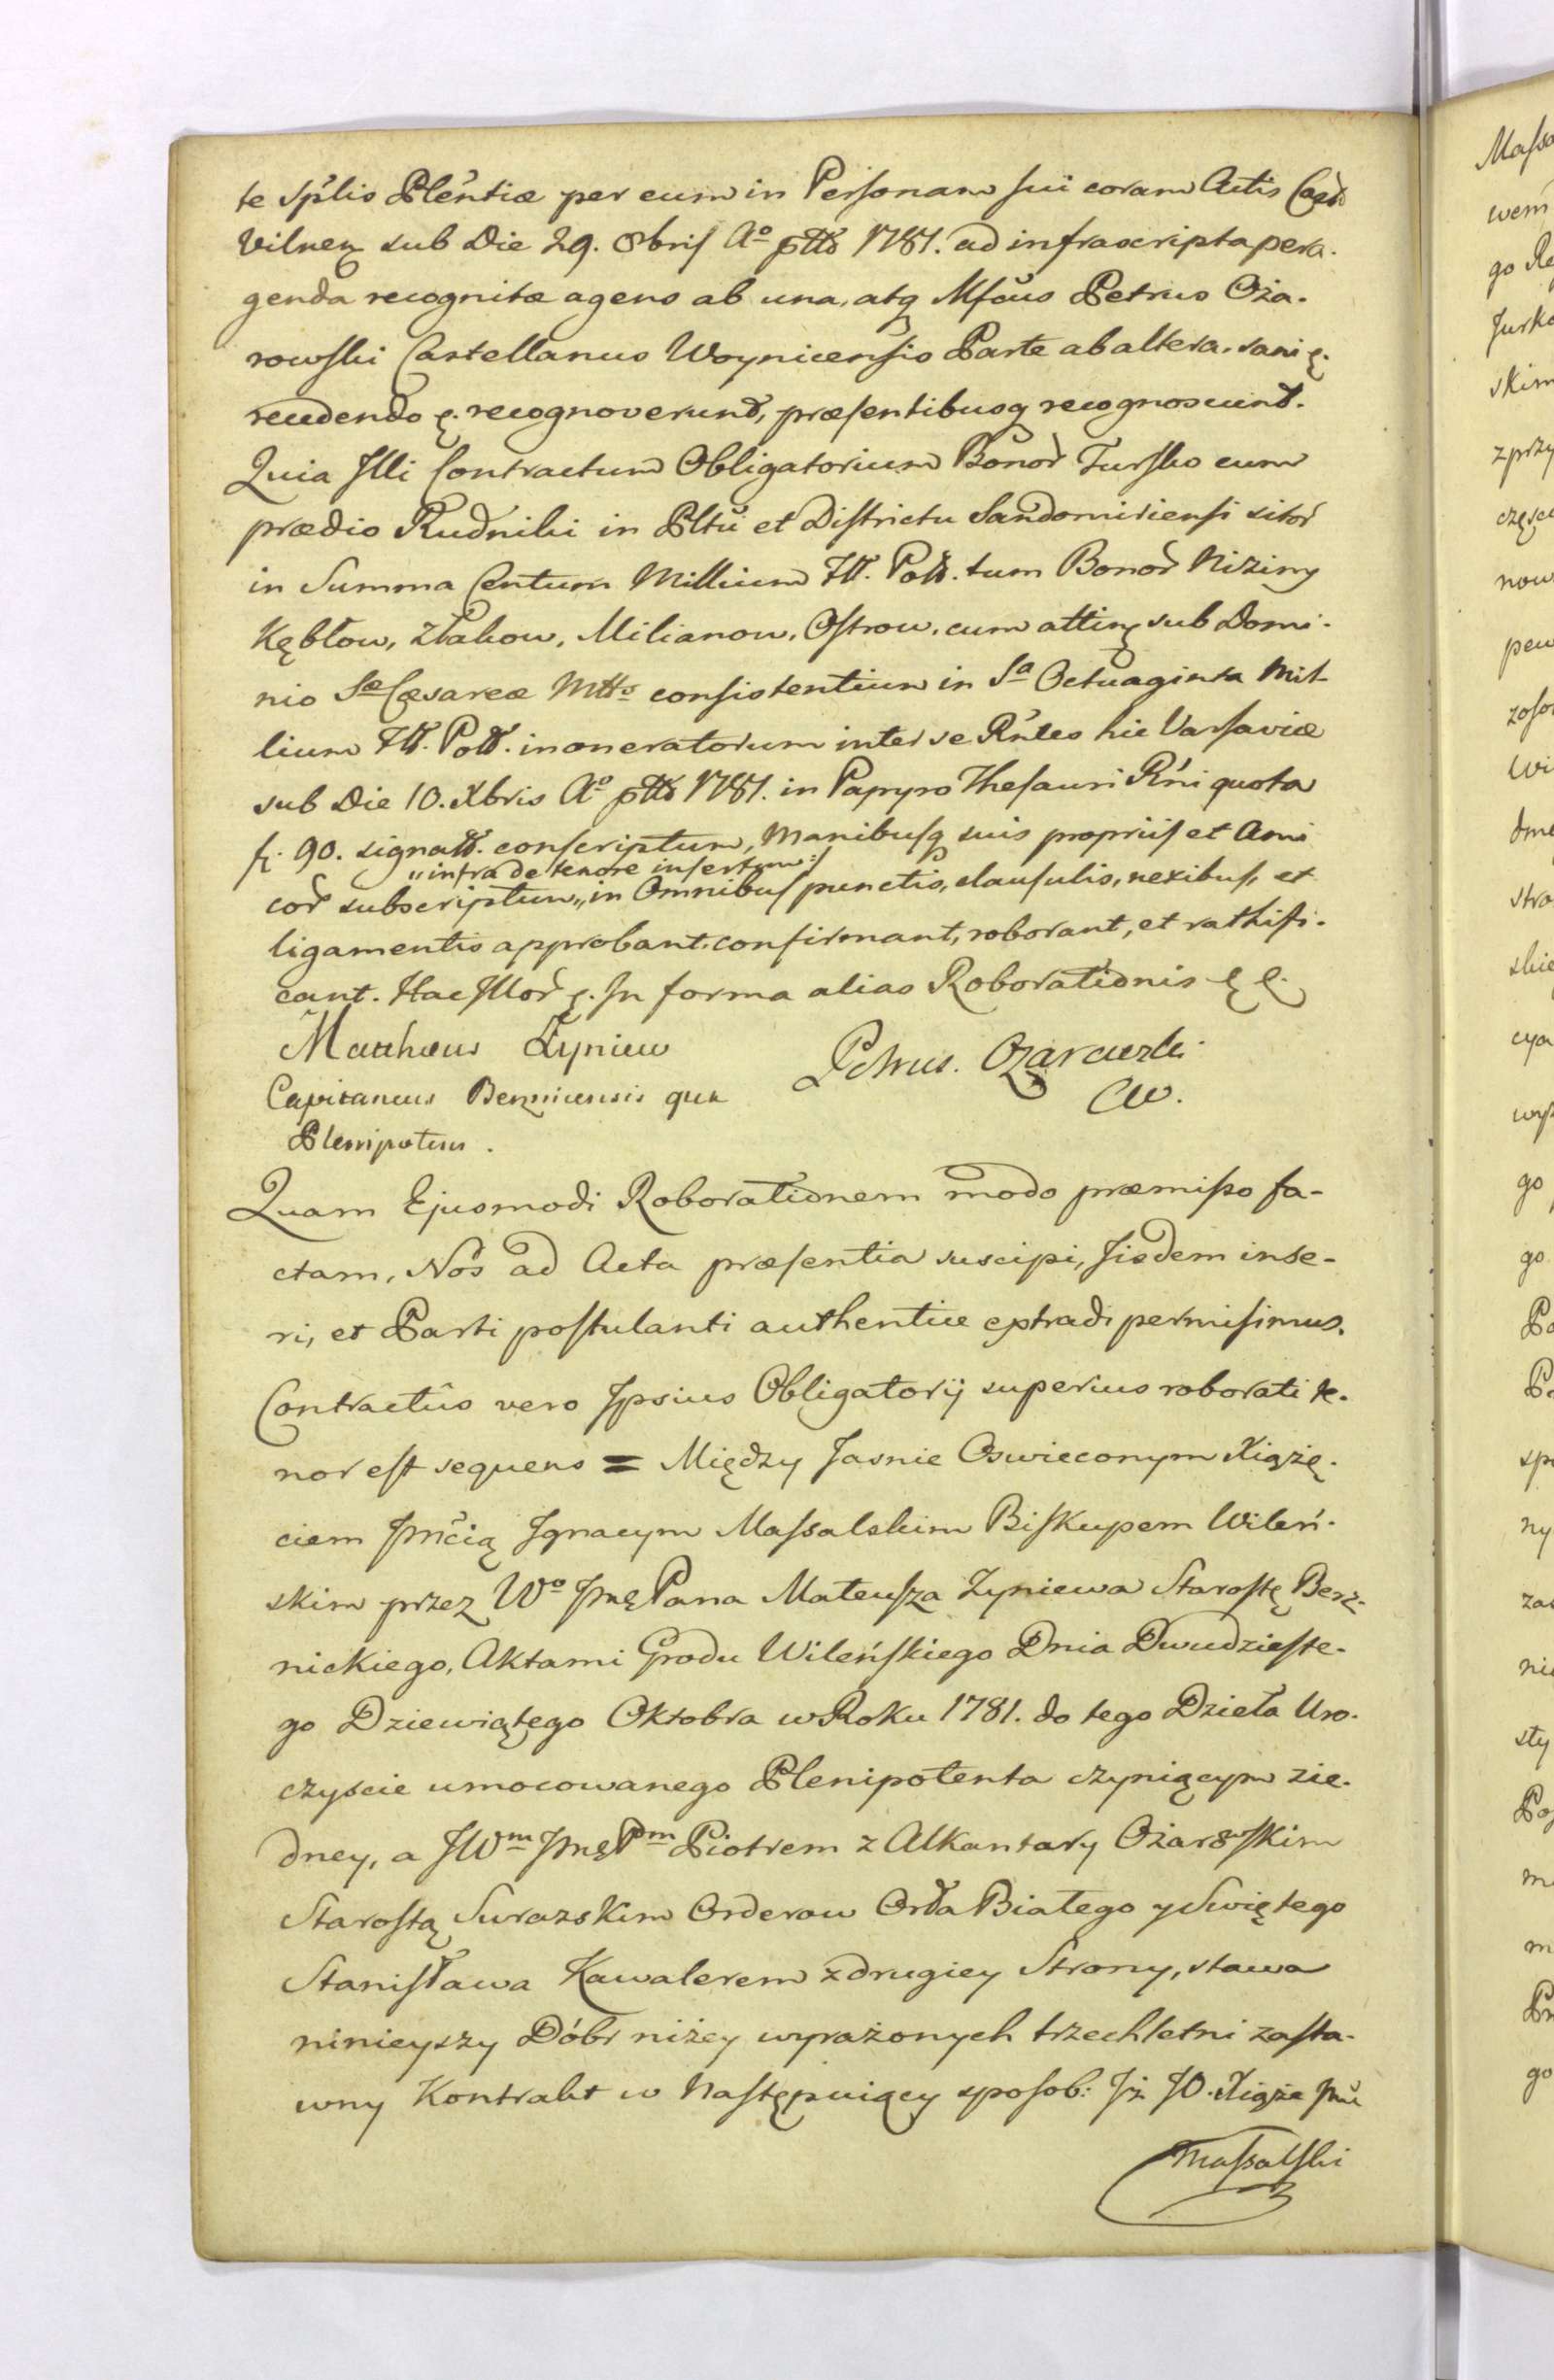 te Spłis Pleñtiæ per eum in Personam sui coram Actis Cast
Vilnen sub Die 29. 8bris Aº ptto 1781. ad infrascripta pera-
genda recognitæ agens ab una, atq Mfcus Petrus Oża-
rowski Castellanus Woynicensis Parte ab altera. sani ę.
recedendo ę. recognoverunt, præsentibusq recognoscunt.
Quia Illi Contractum Obligatorium Bonor Tursko cum
prædio Rudniki in Pltu et Districtu Sandomiriensi sitor
in Summa Centum Millium Fll. Poll. tum Bonor Niziny
Kębłow, Złakow, Milianow, Ostrow, cum attinę sub Domi-
nio Sæ Cæsareæ Mttis consistentium in Sa Octuaginta Mil-
lium Fll. Poll. inoneratorum inter se Rńtes hic Varsaviæ
sub Die 10. Xbris Aº ptto 1781. in Papyro Thesauri Rńi quota
fl. 90. signatt. conscriptum, Manibusq suis propriis et Ami
„infra de tenore insertum:/
cor subscriptum„ in Omnibus punctis, clausulis, nexibus, et
ligamentis approbant, confirmant, roborant, et rathifi-
cant. Hac Illor ę. In forma alias Roborationis ę ę.
Matthæus Żyniew
Petrus. Ożarowski
Capitaneus Berznicensis qua
CW.
Plenipotens.
Quam Ejusmodi Roborationem modo præmisso fa-
ctam, Nos ad Acta præsentia suscipi, Iisdem inse-
ri, et Parti postulanti authentice extradi permisimus.
Contractûs vero Ipsius Obligatorij superius roborati te-
nor est sequens = Między Jasnie Oswieconym Xiążę-
ciem Jmścią Ignacym Massalskim Biskupem Wileń-
skim przez Wº Jmę Pana Mateusza Zyniewa Starostę Berz-
nickiego, Aktami Grodu Wileńskiego Dnia Dwudzieste-
go Dziewiątego Oktobra w Roku 1781. do tego Dzieła Uro-
czyscie umocowanego Plenipotenta czyniącym zie-
dney, a JWm Jmę Pm Piotrem z Alkantary Ożarowskim
Starostą Surazskim Orderow Orła Białego y Swiętego
Stanisława Kawalerem z drugiey Strony, stawa
ninieyszy Dóbr niżey wyrażonych trzechletni zasta-
wny Kontrakt w Następuiący sposob: Iż JO. Xiąże Jmć
Massalski